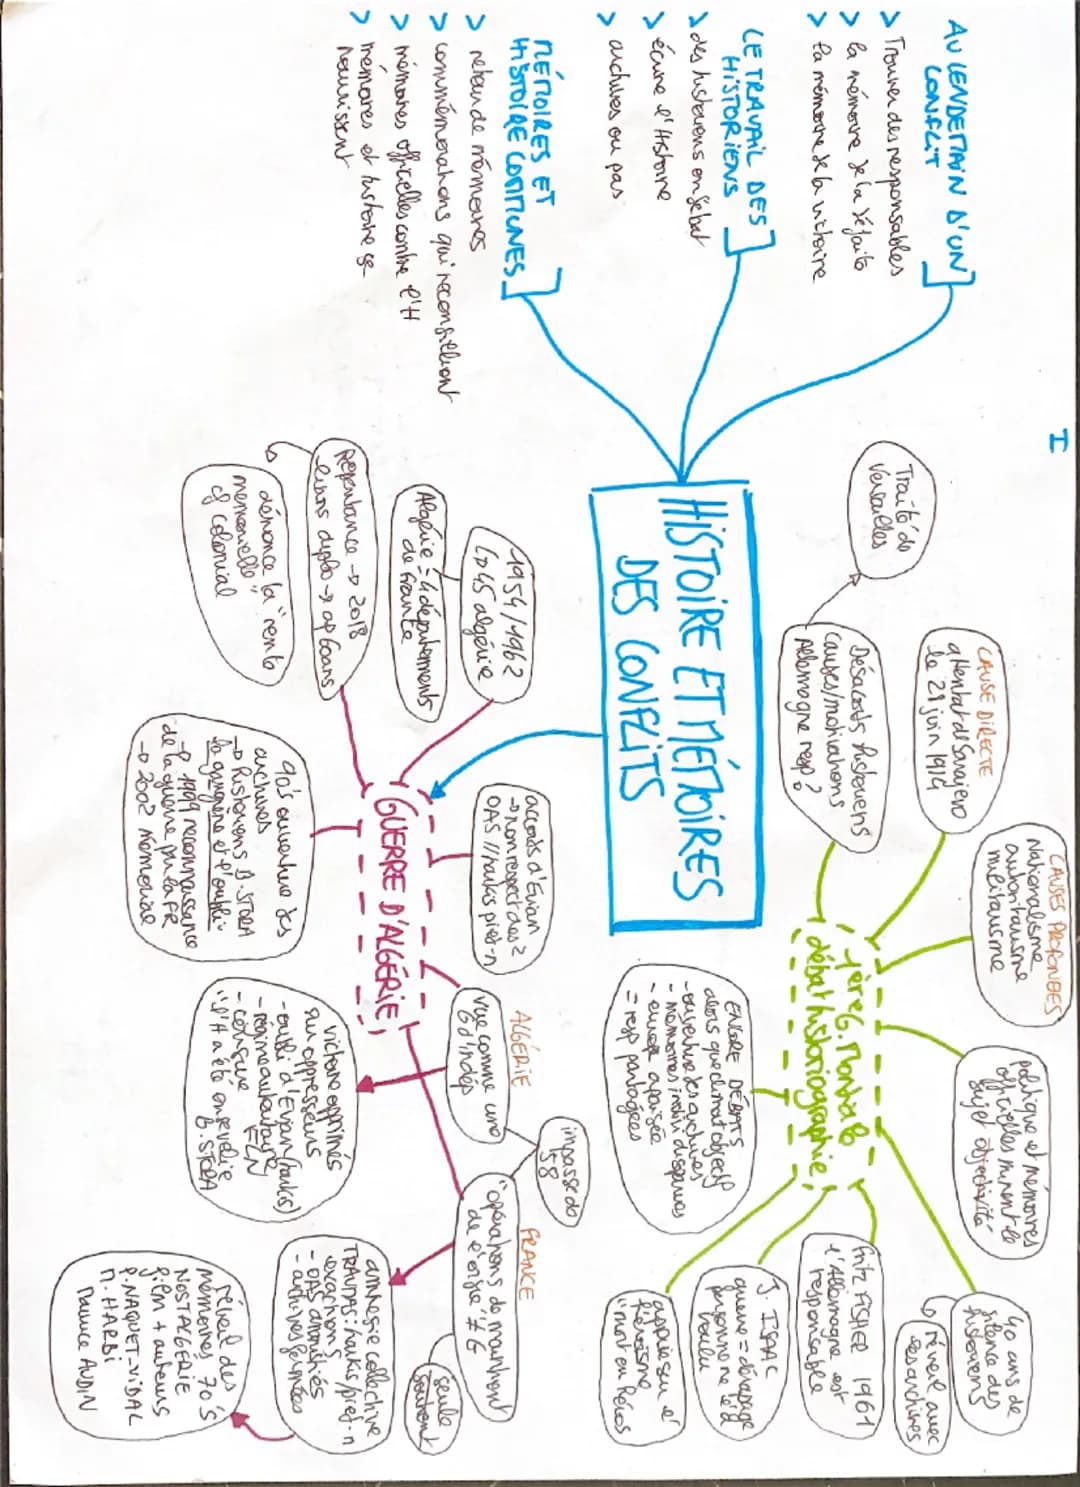 I
AU LENDEMAIN D'UN
CONFLIT
> Trouver des responsables
> la mémoire de la défaite
> la mémoire de la victoire
LE TRAVAIL DES
HISTORIENS
> des historiens en débat
> écrire l'Histoire
> archives ou pas
MÉMOIRES ET
HISTOIRE COMMUNES
> retour de mémoires
> commémorations qui réconcilient
> mémoires officielles contre l'H
> mémoires et histoire se
nourrissent
HISTOIRE ET MÉMOIRES
DES CONFLITS
Traité de
Versailles
CAUSE DIRECTE
attentat d Sarajevo
le 29 juin 1914
Désaccords historiens
causes/motivations
Allemagne resp ?
CAUSES PROFONDES
Nationalisme
autoritarisme
militarisme
politique et mémoires
officielles minent le
sujet objectivité
1ère G. Mondiale
débat historiographie
40 ans de
silence des
historiens
réveil avec
les archives
Fritz FISHER 1961
l'Allemagne est
responsable
J. ISAAC
guerre = dérapage
personne ne l'a
voulu
appuie sur l'
héroïsme
"mort en héros
ENCORE DÉBATS
alors que climat objectif
- ouverture des archives
- mémoires indiv disparues
- europe apaisée
= resp partagées
1954/1962
45 algérie
Algérie = 4 départements
de France
Repentance → 2018
liens diplo → ap 60ans
dénonce la "rente
mémorielle"
colonial
GUERRE D'ALGÉRIE
accords d'Evian
→ non respect des 2
OAS // harkis pied-n
90's ouverture des
archives
→ historiens B. STORA
la gangrène et l'oubli
→ 1999 reconnaissance
de la guerre par la FR
→ 2002 Mémorial
ALGÉRIE
vue comme une
G d'indép
impasse de
58
victoire opprimés
sur oppresseurs
- oubli d'Evian (harkis)
- régime autoritaire
FLN
- censure
"l'H a été ensevelie
B. STORA
FRANCE
"opérations de maintient
de l'ordre" ≠ G
seule
amnésie collective
TRAUMAS : harkis / pied-n
exactions
- OAS amnistiés
- archives fermées
réveil des
mémoires 70's
NOSTALGERIE
film + auteurs
P. NAQUET-VIDAL
M. HARBI
Maurice AUDIN